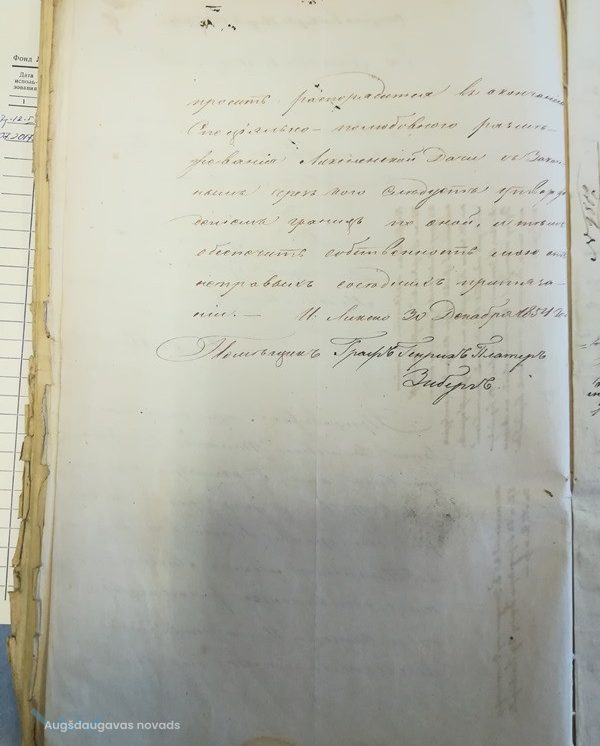 Фонд
Дата
исполь-
зования
1
просить распорядится въ окончании
Специально-полюбовного размѣ-
жования Ликсненской Дачи съ Закон-
нымъ чрезъ кого слѣдуетъ утверж-
деніемъ границъ по оной, и тѣмъ
обеспечить собственность мою отъ
неправыхъ сосѣднихъ притяза-
ній. — И. Ликсно 30 Декабря 1854 г.
Помѣщикъ Графъ Генрихъ Платеръ
Зибергъ
Augšdaugavas novads